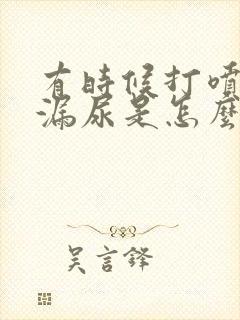 有時候打噴
漏尿是怎麼
吳言鋒